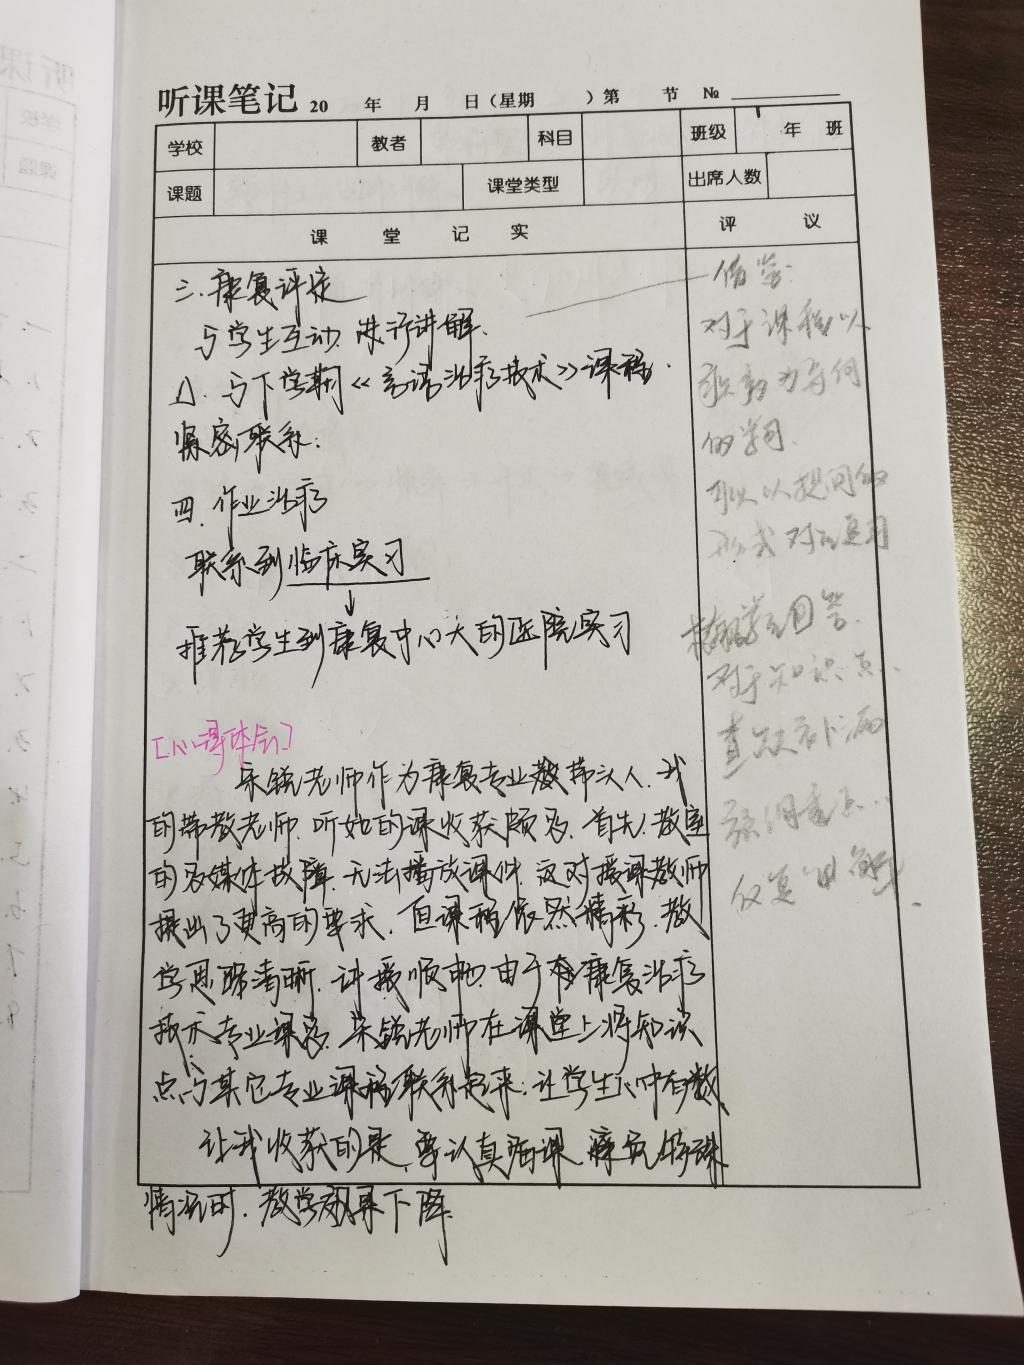 听课笔记 20 年 月 日（星期 ）第 节 №
学校 教者 科目 班级 年 班
课题 课堂类型 出席人数
课 堂 记 实 评 议
三.康复评定
与学生互动.进行讲解.
与下学期《言语治疗技术》课程.
紧密联系.
四.作业治疗
联系到临床实习
↓
推荐学生到康复中心大的医院实习
[心得体会]
宋锐老师作为康复专业教带头人.我
的带教老师.听她的课收获颇多.首先,教室
的多媒体故障.无法播放课件.这对授课教师
提出了更高的要求.但课程依然精彩.教
学思路清晰.讲授顺 由于 康复治疗
技术专业课多.宋锐老师在课堂上将知识
点与其它专业课程联系起来.让学生心中有数.
让我收获的是.要认真备课. 特殊
情况时.教学 下降.
对于课程以
的学习.
可以以提问的
形式对 复习
回答.
对于知识点..
查缺补漏